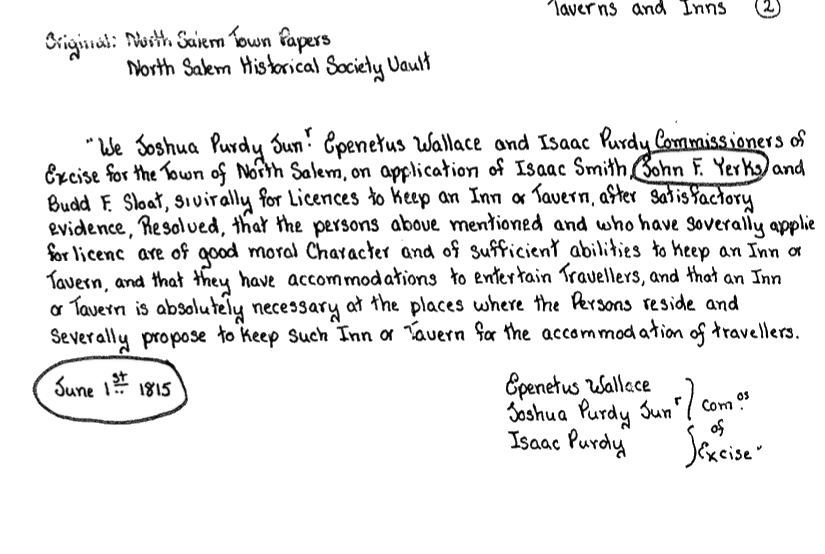 Taverns and Inns (2)
Original: North Salem Town Papers
North Salem Historical Society Vault
"We Joshua Purdy Junr. Epenetus Wallace and Isaac Purdy Commissioners of
Excise for the Town of North Salem, on application of Isaac Smith, John F. Yerks and
Budd F. Sloat, sivirally for Licences to Keep an Inn or Tavern, after satisfactory
evidence, Resolved, that the persons above mentioned and who have soverally applie
for licenc are of good moral Character and of sufficient abilities to Keep an Inn or
Tavern, and that they have accommodations to entertain Travellers, and that an Inn
or Tavern is absolutely necessary at the places where the Persons reside and
Severally propose to Keep Such Inn or Tavern for the accommodation of travellers.
June 1st 1815
Epenetus Wallace
Joshua Purdy Junr
Isaac Purdy
Comos.
of
Excise"